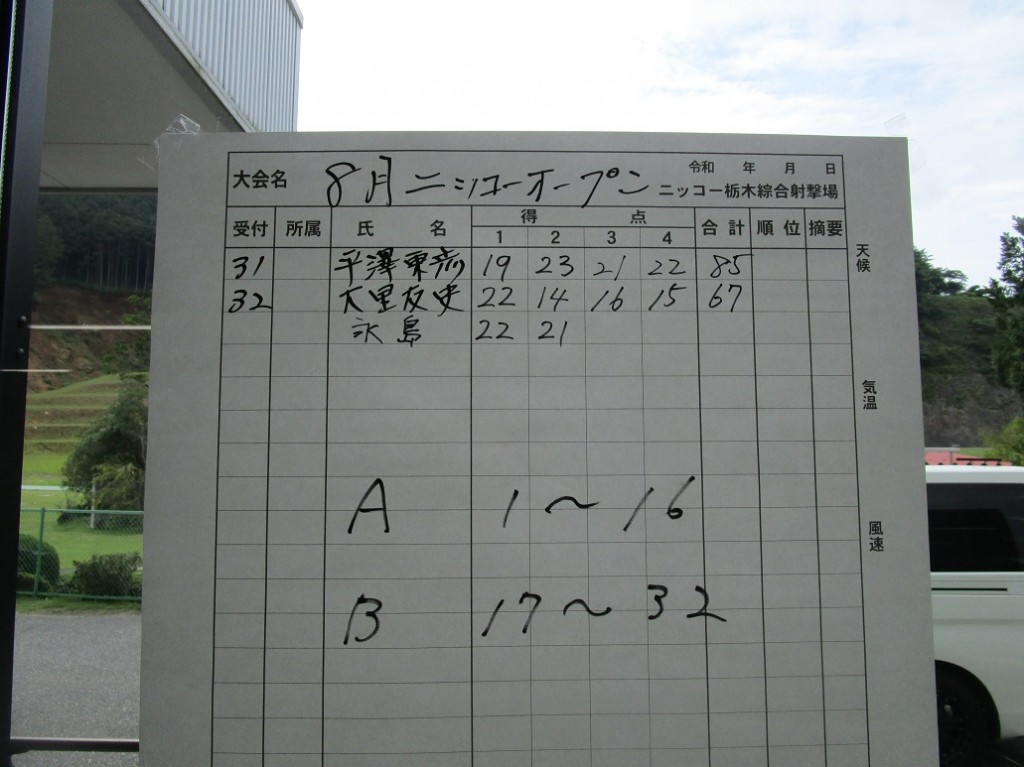 大会名 8月ニッコーオープン 令和 年 月 日
ニッコー栃木綜合射撃場
受付 所属 氏名 得点 合計 順位 摘要
1 2 3 4
31 平澤東彦 19 23 21 22 85
32 大里友史 22 14 16 15 67
永島 22 21
A 1〜16
B 17〜32
天候
気温
風速